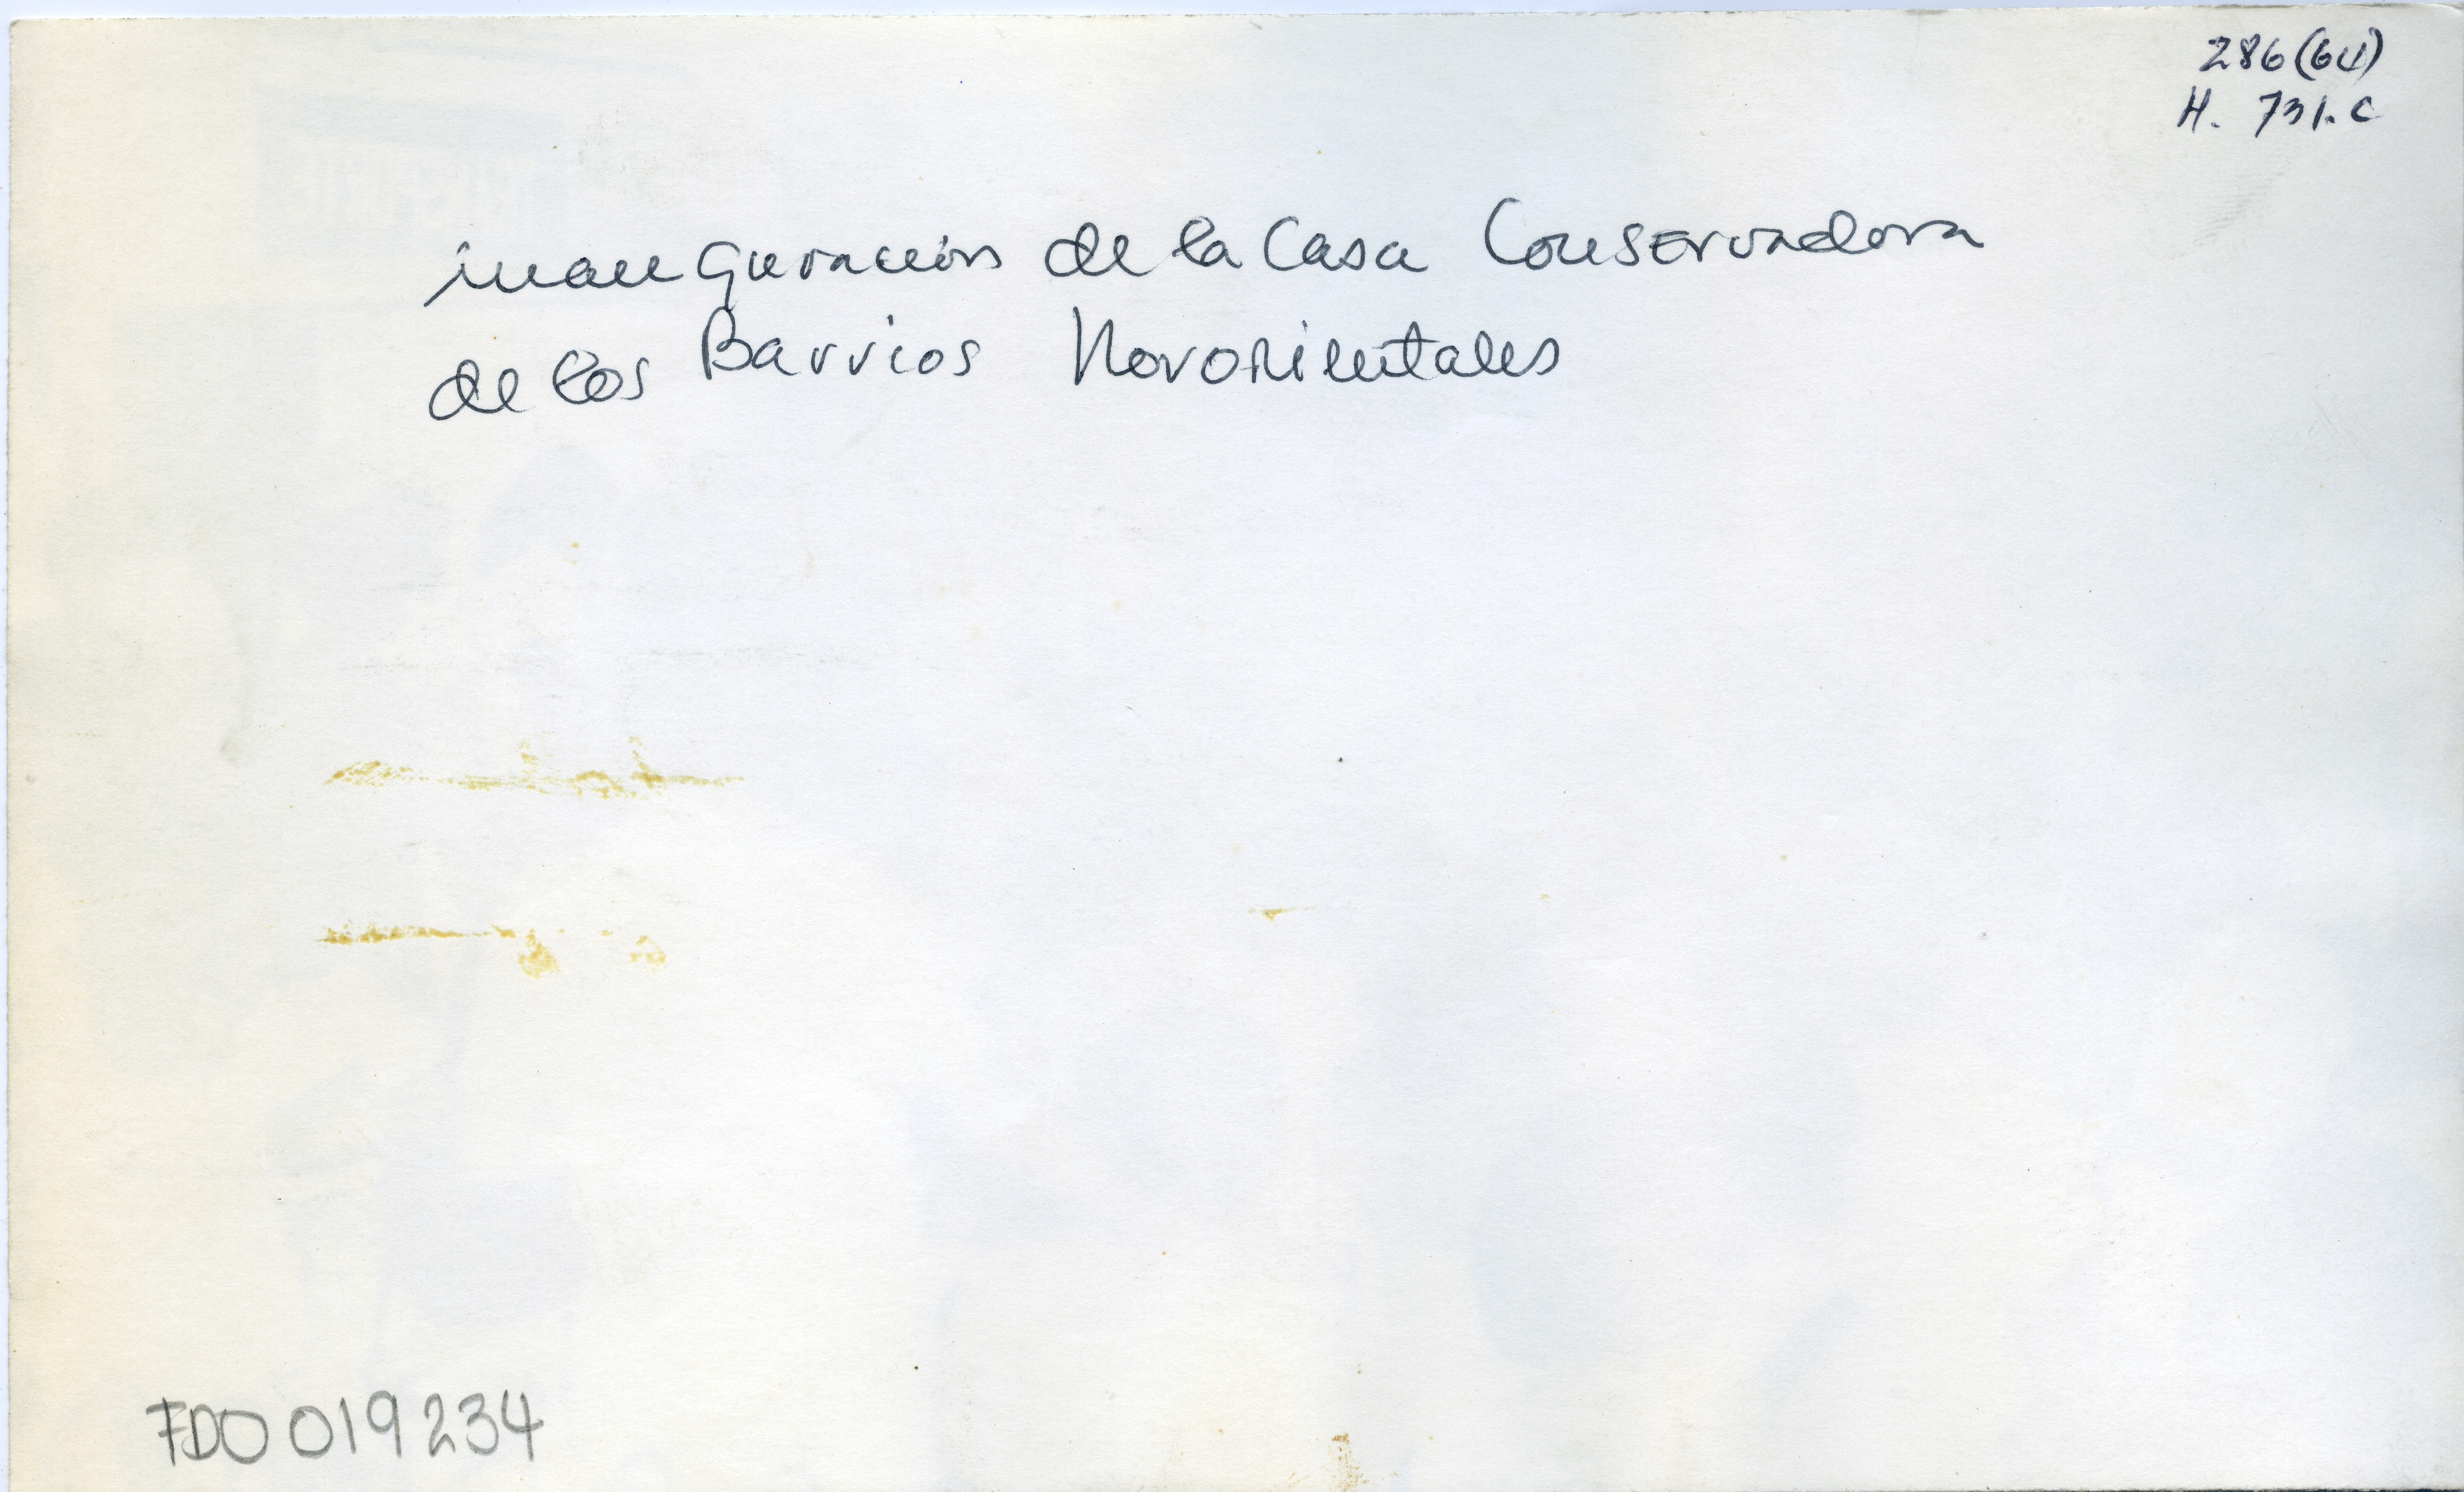 286(64)
H. 731.C
inauguración de la Casa Conservadora
de los Barrios Nororientales
FDO019234